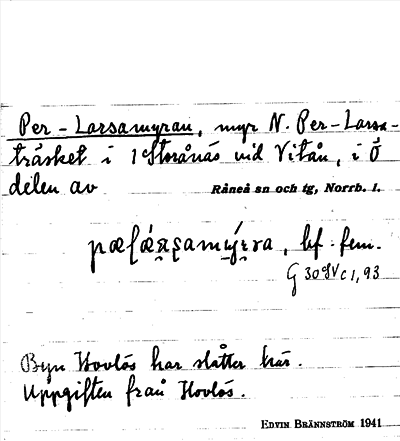 Per-Larsamyran, myr N. Per-Larsa-
träsket i 1 Storånäs vid Vitån, i Ö
delen av Råneå sn och tg, Norrb. l.
bf. fem.
G 30 SV c 1, 93
Byn Hovlös har slåtter här.
Uppgiften från Hovlös.
EDVIN BRÄNNSTRÖM 1941